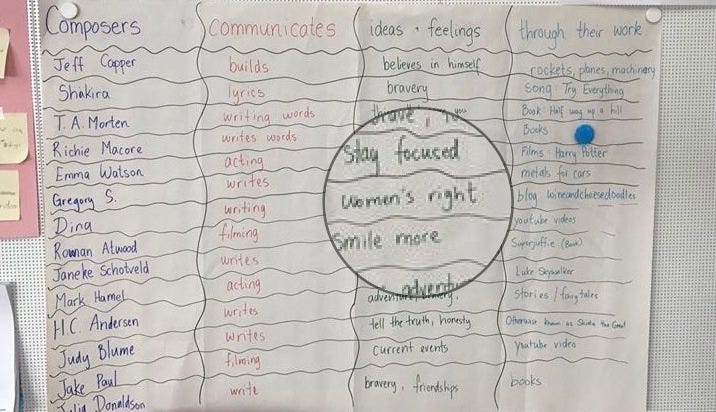 Composers communicates ideas + feelings through their work
Jeff Copper builds believes in himself rockets, planes, machinery
Shakira lyrics bravery song Try Everything
T.A. Morten writing words Book: Half way up a hill
Richie Macore writes words Stay focused Books
Emma Watson acting women's right Films: Harry Potter
Gregory S. writes Smile more metals for cars
Dina writing blog wineandcheesedoodles
Roman Atwood filming youtube videos
Janeke Schotveld writes Superjuffie (Book)
Mark Hamel acting Luke Skywalker
H.C. Andersen writes adventure, Stories / fairytales
Judy Blume writes tell the truth, honesty Otherwise known as Sheila the Great
Jake Paul filming current events youtube video
Julia Donaldson write bravery, friendships books